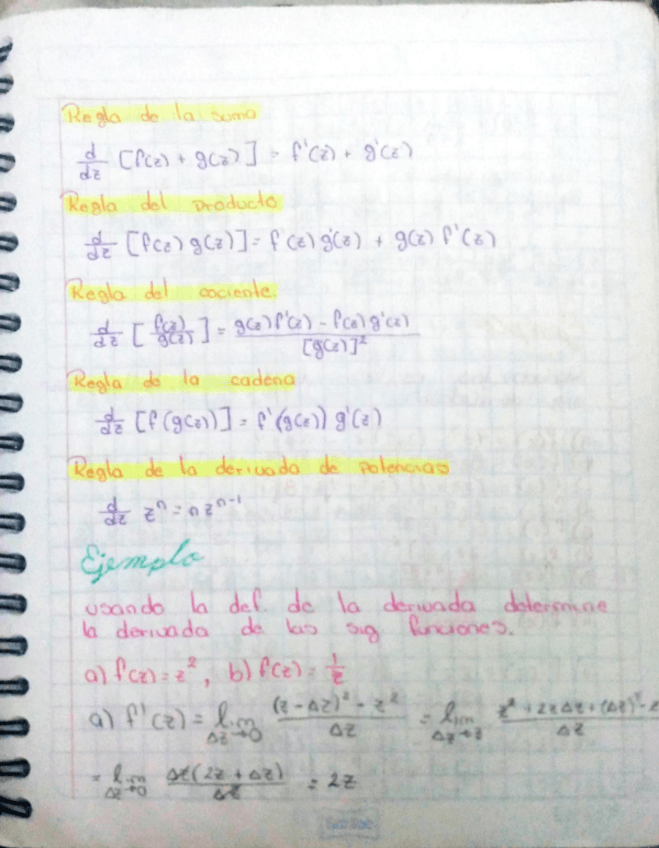 Regla de la suma
d/dz [f(z) + g(z)] = f'(z) + g'(z)
Regla del producto
d/dz [f(z) g(z)] = f(z) g'(z) + g(z) f'(z)
Regla del cociente
d/dz [f(z)/g(z)] = g(z) f'(z) - f(z) g'(z) / [g(z)]²
Regla de la cadena
d/dz [f(g(z))] = f'(g(z)) g'(z)
Regla de la derivada de potencias
d/dz zⁿ = n zⁿ⁻¹
Ejemplo
usando la def. de la derivada determine
la derivada de las sig funciones.
a) f(z) = z², b) f(z) = 1/z
a) f'(z) = lim Δz→0 (z - Δz)² - z² / Δz = lim z² + 2zΔz + (Δz)² - z / Δz
= lim Δz→0 Δz(2z + Δz) / Δz = 2z